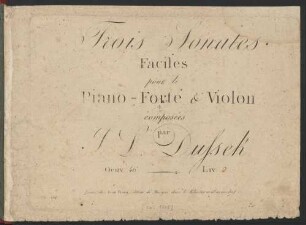 Trois Sonates
Faciles
pour le
Piano-Forté & Violon
composées
par
J L Dussek
Oeuv Liv 2